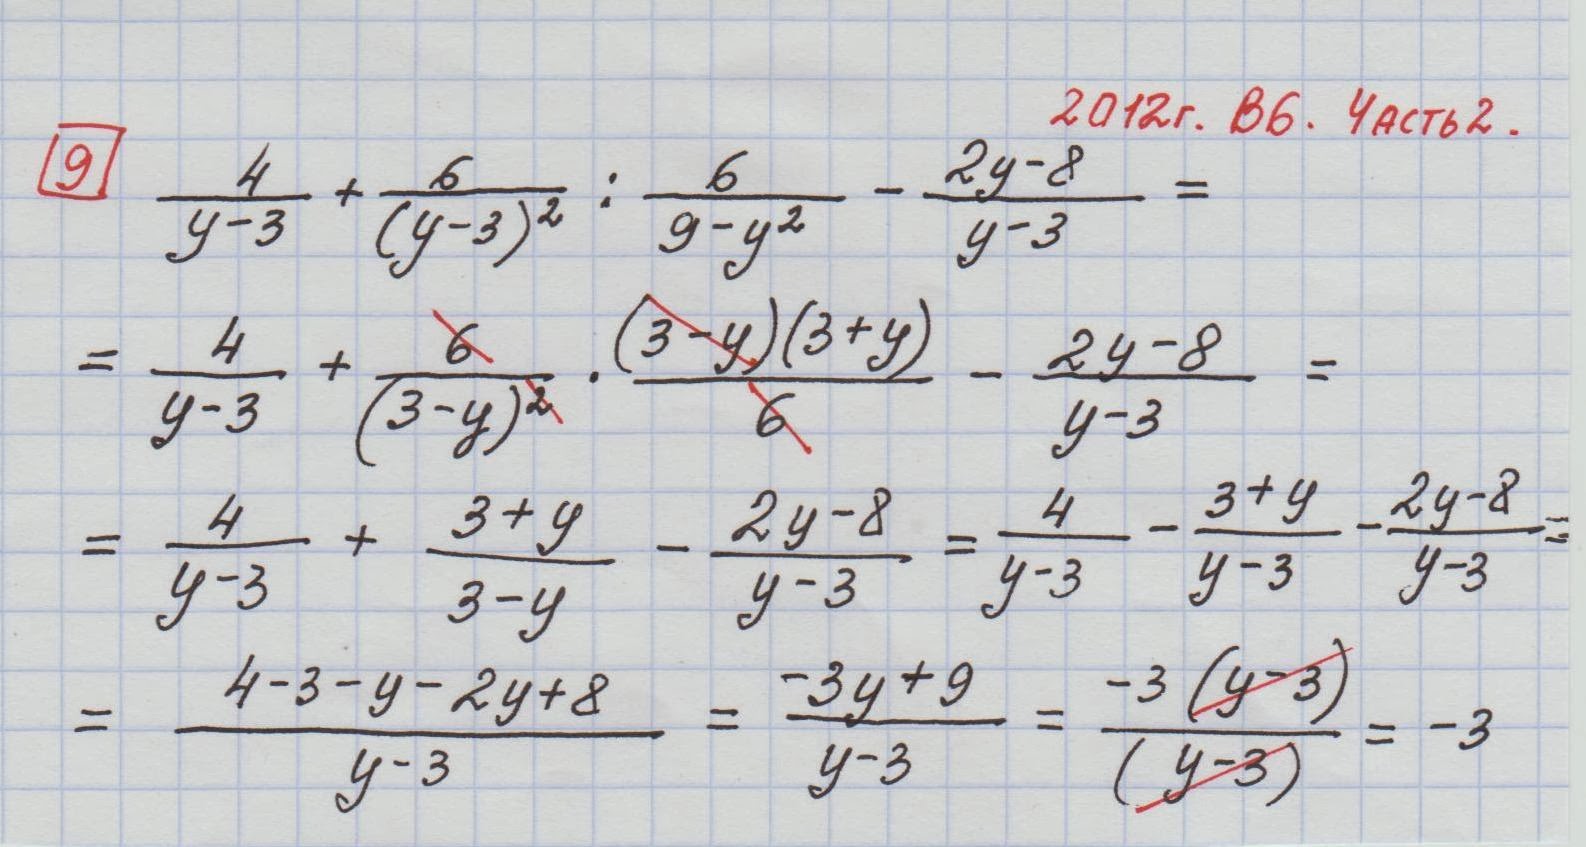 2012г. В6. Часть 2.
9 4/(y-3) + 6/(y-3)² : 6/(9-y²) - (2y-8)/(y-3) =
= 4/(y-3) + 6/(3-y)² · (3-y)(3+y)/6 - (2y-8)/(y-3) =
= 4/(y-3) + (3+y)/(3-y) - (2y-8)/(y-3) = 4/(y-3) - (3+y)/(y-3) - (2y-8)/(y-3) =
= (4-3-y-2y+8)/(y-3) = (-3y+9)/(y-3) = -3(y-3)/(y-3) = -3